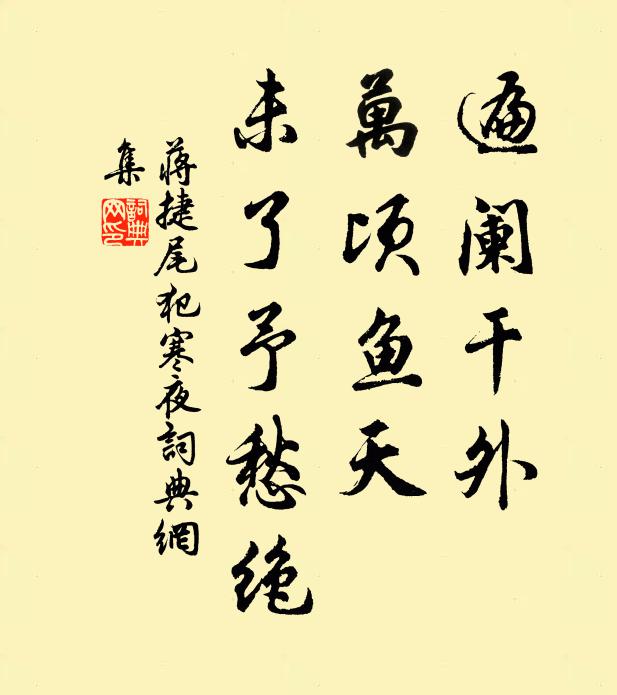 遍阑干外
萬頃鱼天
未了予愁绝
蒋捷尾犯寒夜詞典網
集
詞典网印